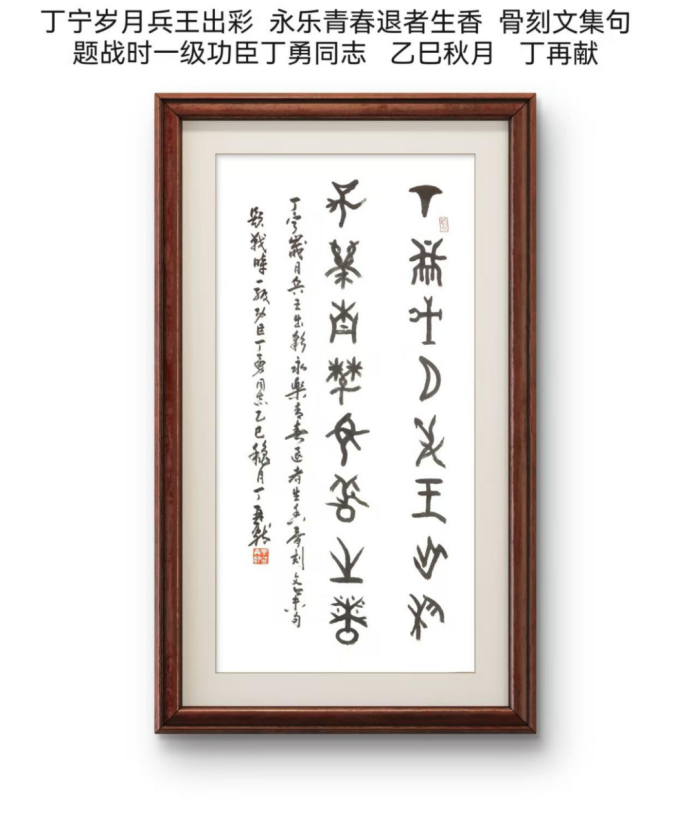 丁宁岁月兵王出彩 永乐青春退者生香 骨刻文集句
题战时一级功臣丁勇同志 乙巳秋月 丁再献
丁宁岁月兵王出彩
永乐青春退者生香
丁宁岁月兵王出彩永樂青春退者生香骨刻文集句
题战时一级功臣丁勇同志乙巳穐月丁再献